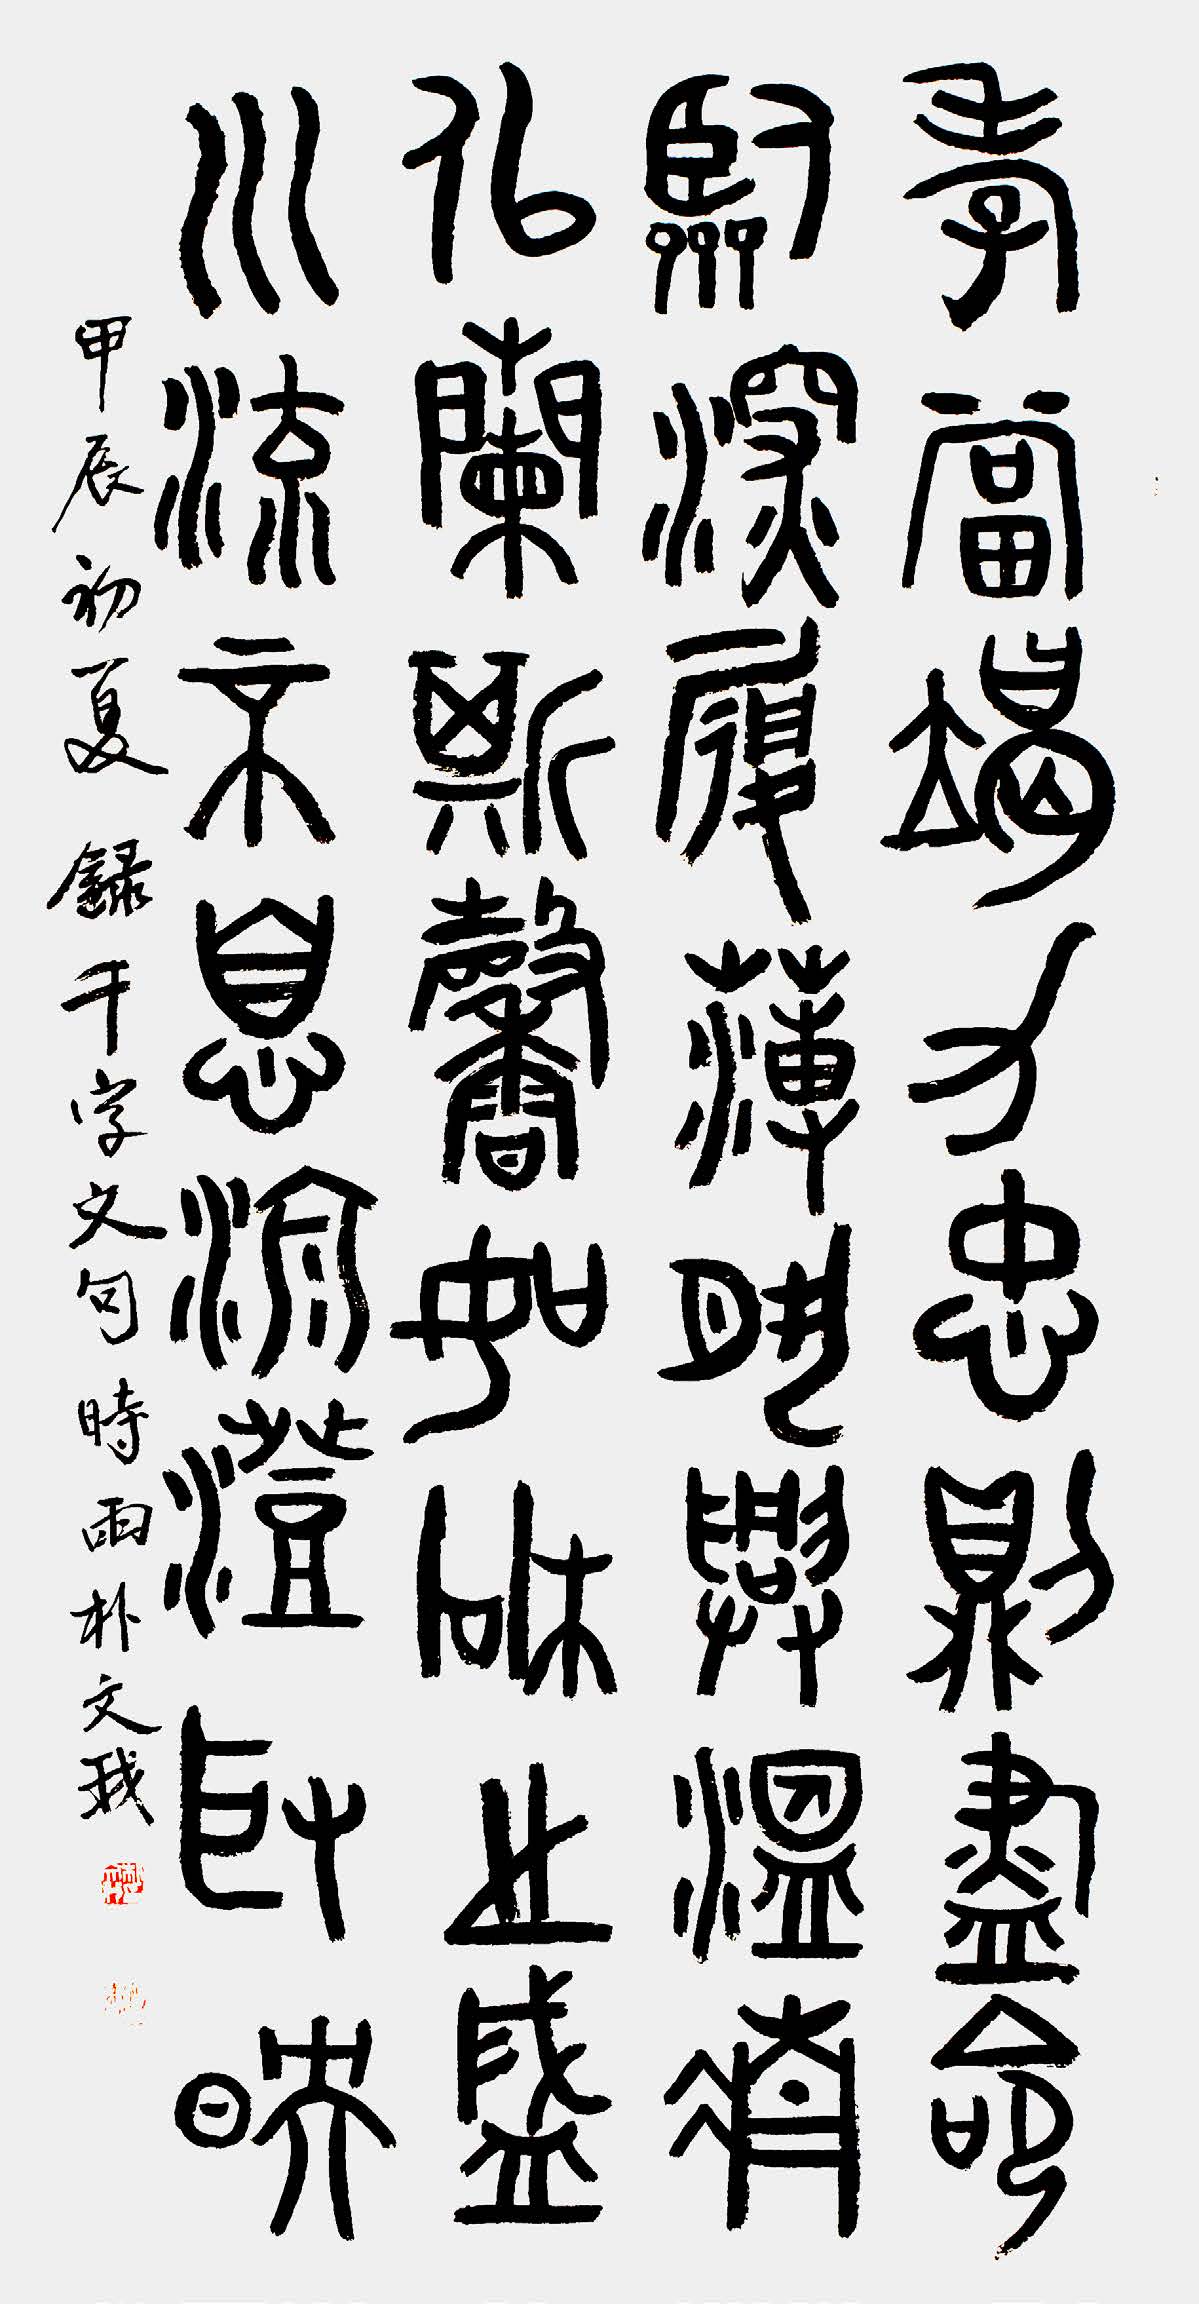 孝當竭力忠則盡命
臨深履薄夙興溫凊
似蘭斯馨如松之盛
川流不息淵澄取映
甲辰初夏錄千字文句時雨朴文